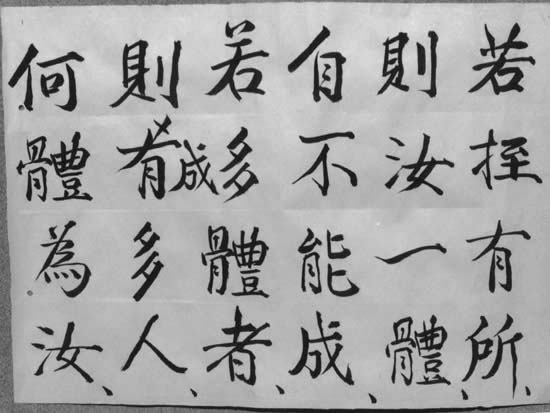 若挃有所、
則汝一體、
自不能成、
若多體者、
則成多人、
何體為汝、